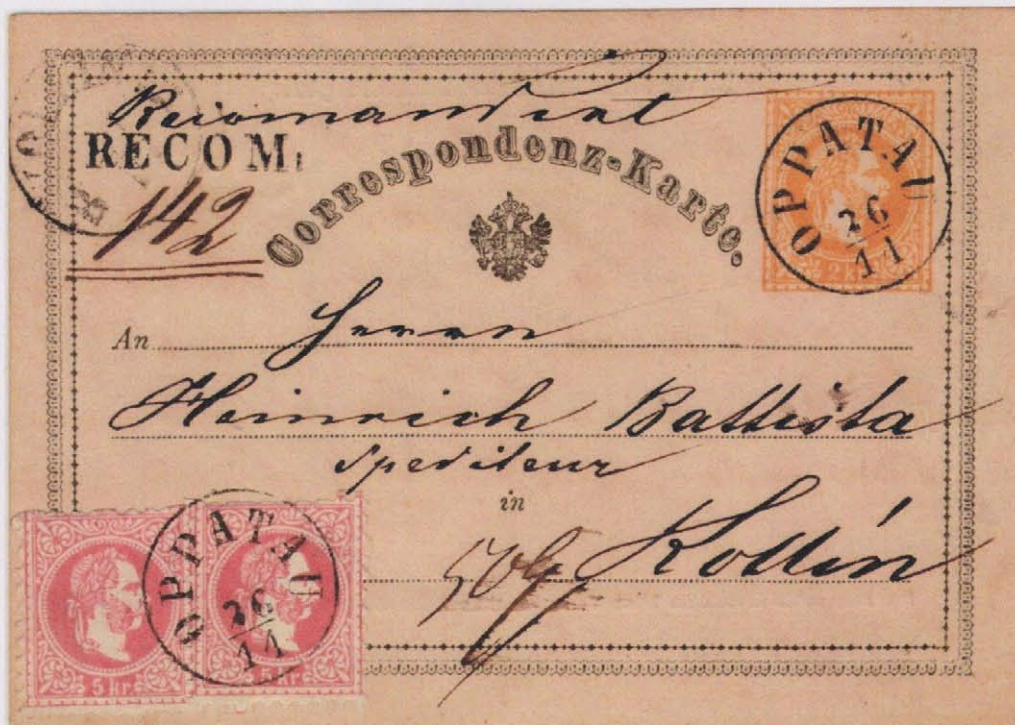 Recomandirt
RECOM:
142
Correspondenz-Karte.
2 kr
OPPATAU
26
11
An Herrn
Heinrich Battista
Spediteur
in
Kollin
5 kr
OPPATAU
26
11